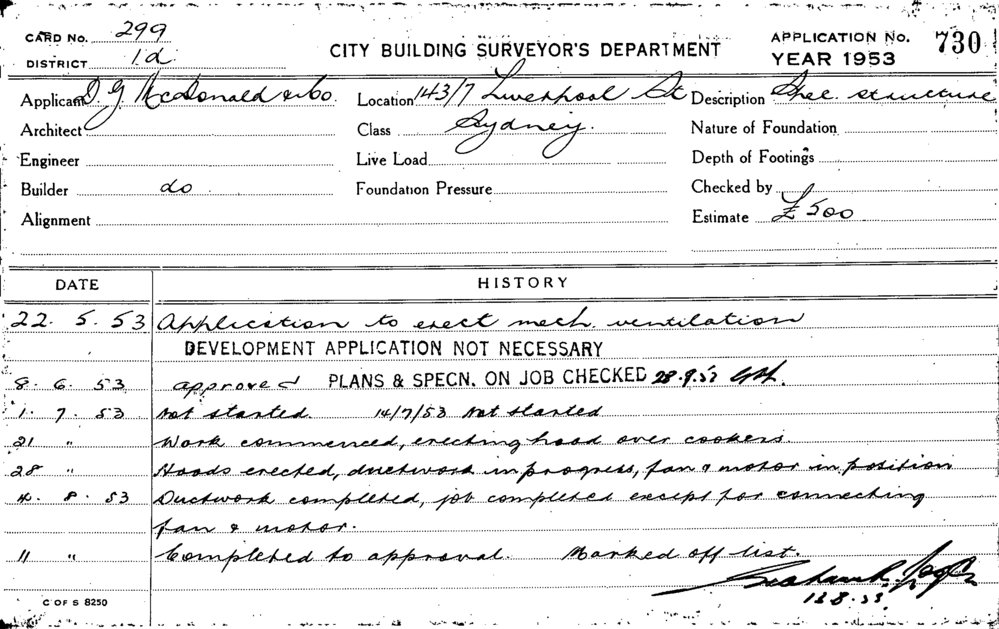 CARD No. 299
DISTRICT 1d.
CITY BUILDING SURVEYOR'S DEPARTMENT
APPLICATION No. 730
YEAR 1953
Applicant D G McDonald & Co. Location 143/7 Liverpool St Description Spec. structure
Architect Class Sydney. Nature of Foundation
Engineer Live Load Depth of Footings
Builder do Foundation Pressure Checked by
Alignment Estimate £500
DATE HISTORY
22. 5. 53 Application to erect mech. ventilation
DEVELOPMENT APPLICATION NOT NECESSARY
8. 6. 53 approved PLANS & SPECN. ON JOB CHECKED 28.9.53
1. 7. 53 Not started. 14/7/53 Not started
21 " Work commenced, erecting hood over cookers.
28 " Hoods erected, ductwork in progress, fan & motor in position
4. 8. 53 Ductwork completed, job completed except for connecting
fan & motor.
11 " Completed to approval. Marked off list.
13.8.53.
C OF S 8250